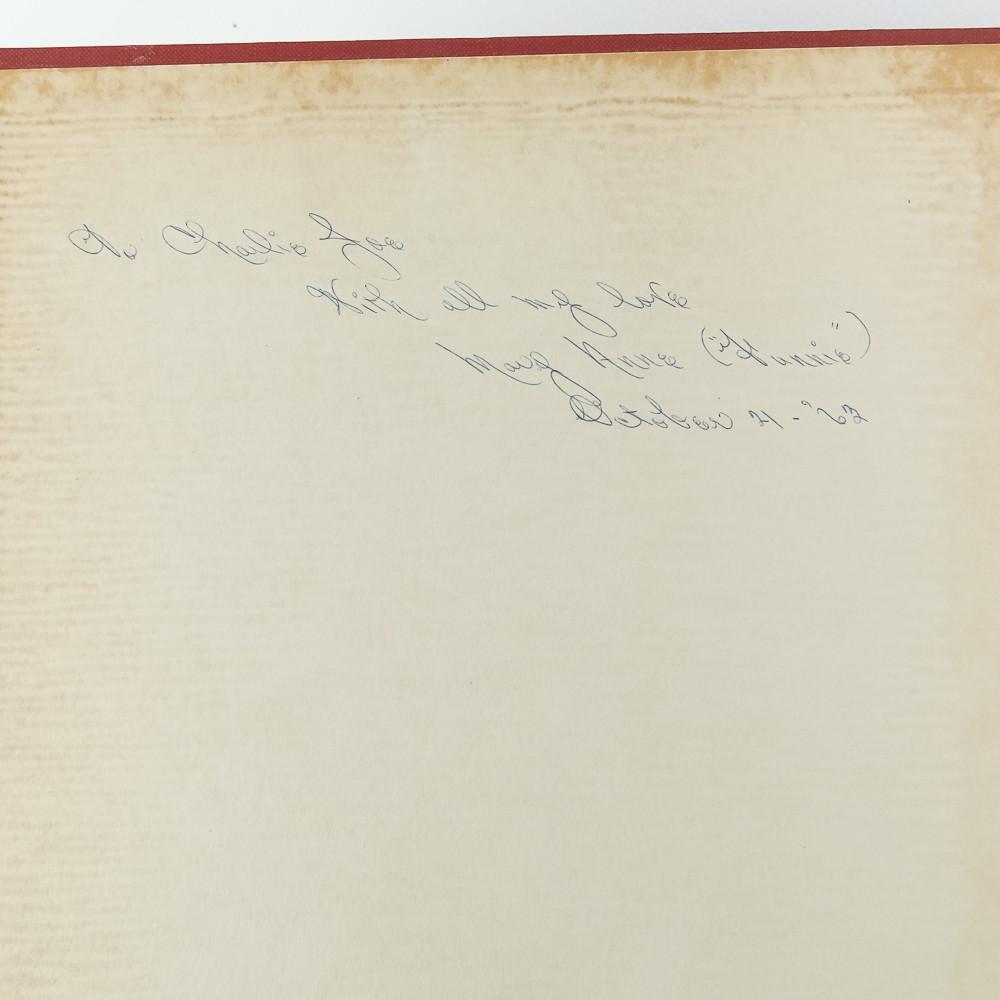 To Charlie Joe
With all my love
Mary Anne ("Nunnie")
October 21 - '63